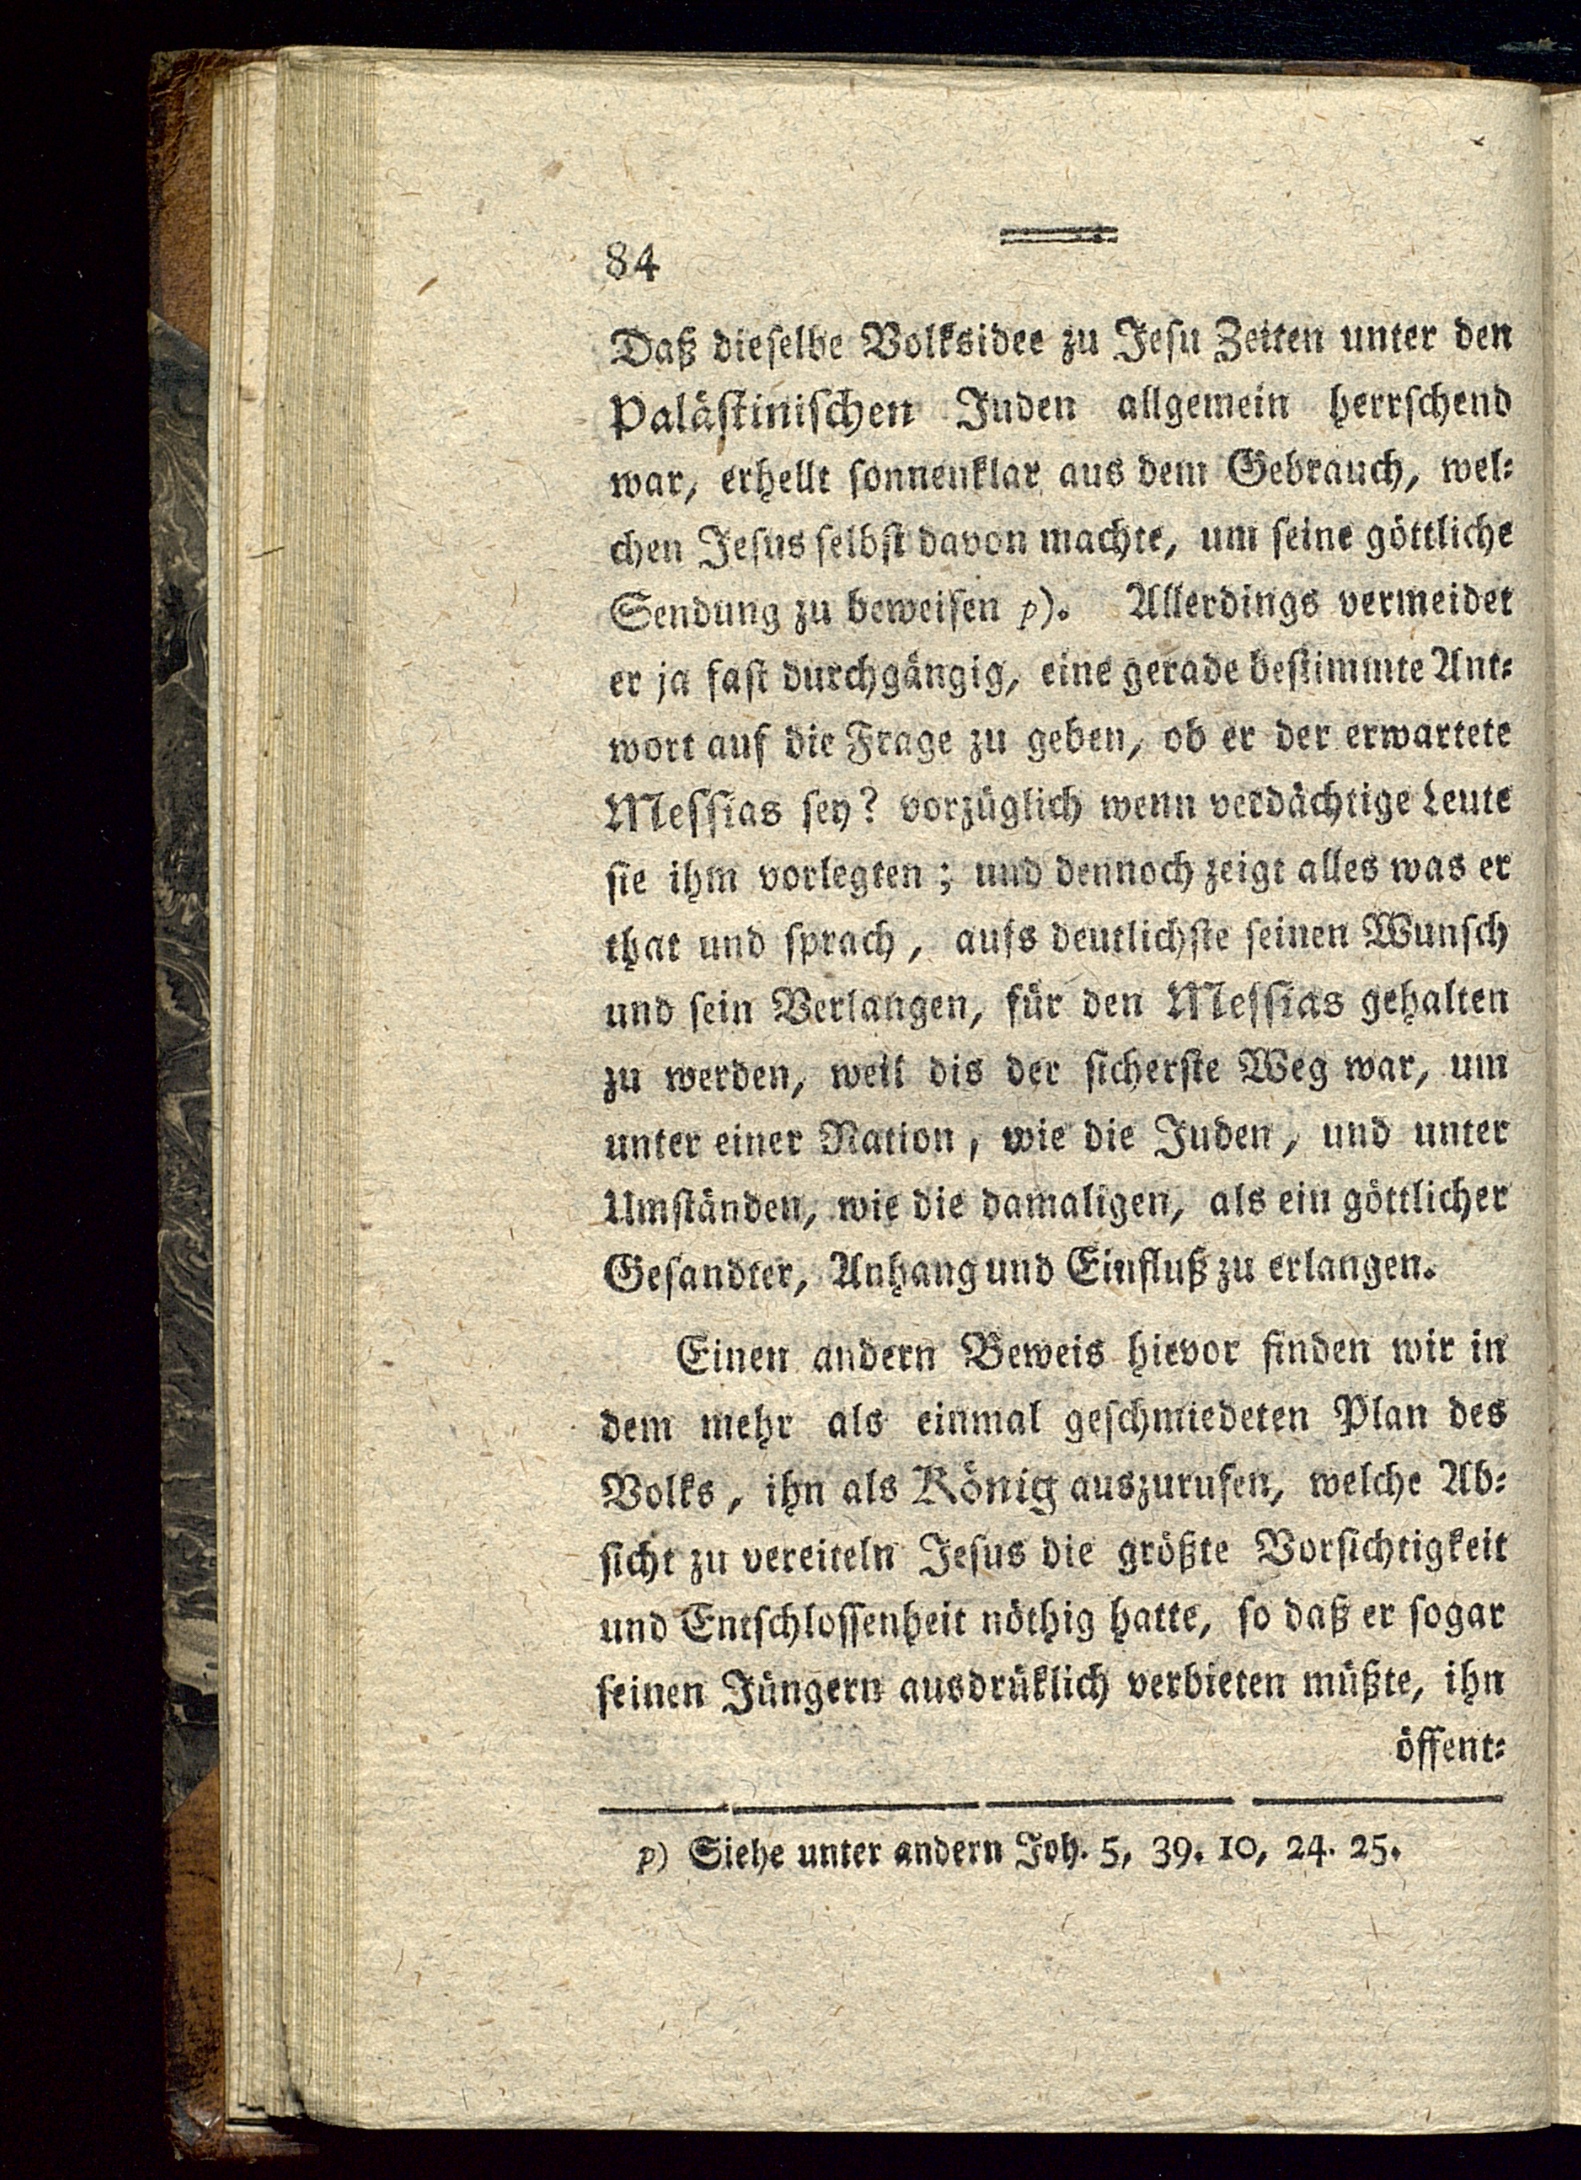 84
Daß dieselbe Volksidee zu Jesu Zeiten unter den
Palästinischen Juden allgemein herrschend
war, erhellt sonnenklar aus dem Gebrauch, wel-
chen Jesus selbst davon machte, um seine göttliche
Sendung zu beweisen p). Allerdings vermeidet
er ja fast durchgängig, eine gerade bestimmte Ant-
wort auf die Frage zu geben, ob er der erwartete
Messias sey? vorzüglich wenn verdächtige Leute
sie ihm vorlegten; und dennoch zeigt alles was er
that und sprach, aufs deutlichste seinen Wunsch
und sein Verlangen, für den Messias gehalten
zu werden, weil dis der sicherste Weg war, um
unter einer Nation, wie die Juden, und unter
Umständen, wie die damaligen, als ein göttlicher
Gesandter, Anhang und Einfluß zu erlangen.
Einen andern Beweis hievor finden wir in
dem mehr als einmal geschmiedeten Plan des
Volks, ihn als König auszurufen, welche Ab-
sicht zu vereiteln Jesus die größte Vorsichtigkeit
und Entschlossenheit nöthig hatte, so daß er sogar
seinen Jüngern ausdrüklich verbieten müßte, ihn
öffent-
p) Siehe unter andern Joh. 5, 39. 10, 24. 25.